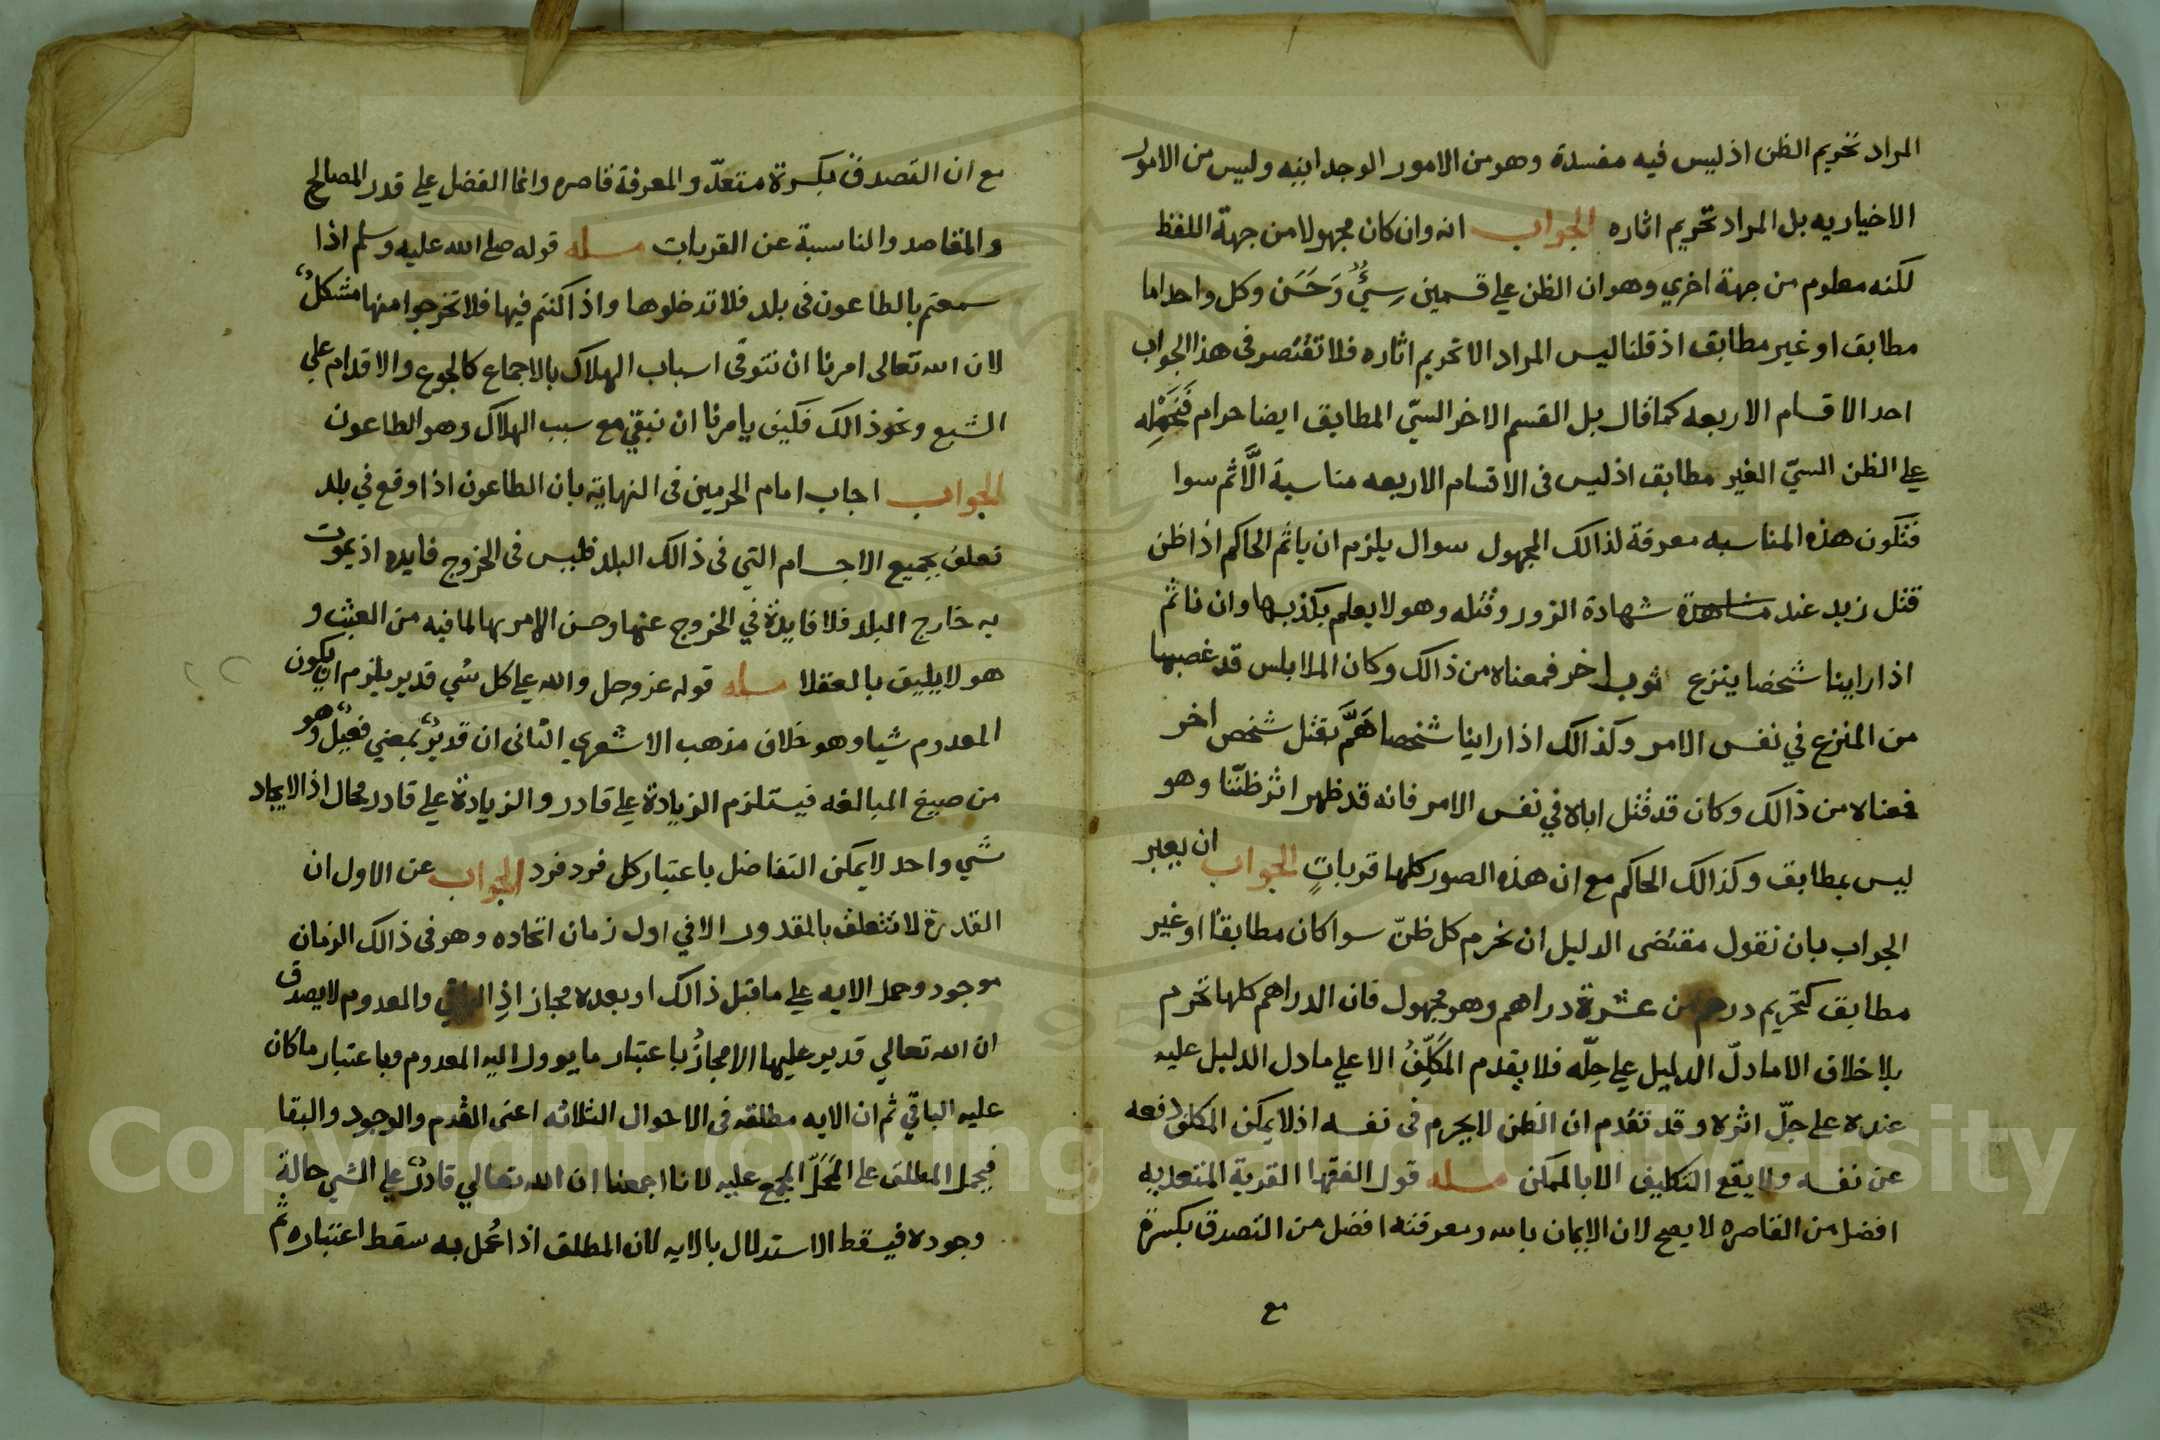 المراد تحريم الظن اذ ليس فيه مفسدة وهو من الامور الوجدانيه وليس من الامور
الاختياريه بل المراد تحريم اثاره الجواب انه وان كان مجهولا من جهة اللفظ
لكنه معلوم من جهة اخري وهو ان الظن علي قسمين سِيَئٌ وَحَسَن وكل واحد اما
مطابق او غير مطابق اذ قلنا ليس المراد الا تحريم اثاره فلا تقتصر في هذا الجواب
احد الاقسام الاربعه كما قال بل القسم الاخر السيّ المطابق ايضا حرام فَنَحْمِله
علي الظن السيّ الغير مطابق اذ ليس في الاقسام الاربعه مناسبة الَّاثم سوا
فتكون هذه المناسبه معرفة لذالك المجهول سوال يلزم ان ياثم الحاكم اذا ظن
قتل زيد عند مشاهدة شهادة الزور وقتله وهو لا يعلم بكذبها وان ناثم
اذا راينا شخصا ينزع ثوب اخر فمعناه من ذالك وكان الملابس قد غصبها
من المنزع في نفس الامر وكذالك اذا راينا شخصا هَمَّ بقتل شخص اخر
فمعناه من ذالك وكان قد قتل اباه في نفس الامر فانه قد ظهر اثر ظنّنا وهو
ليس بمطابق وكذالك الحاكم مع ان هذه الصور كلها قرباتٍ الجواب ان يعبر
الجواب بان نقول مقتضى الدليل ان نحرم كل ظنّ سوا كان مطابقا او غير
مطابق كتحريم درهم من عشرة دراهم وهو مجهول فان الدراهم كلها تحرم
بلا خلاف الا ما دلّ الدليل علي حِلّه فلا يقدم المكلِّفُ الا علي ما دل الدليل عليه
عنده على حِلّ اثره وقد تقدم ان الظن لا يحرم في نفسه اذ لا يمكن المكلف دفعه
عن نفسه ولا يقع التكليف الا بالممكن مسله قول الفقها القربة المتعديه
افضل من القاصره لا يصح لان الايمان بالله ومعرفته افضل من التصدق بكسرة
مع
مع ان التصدق بكسرة متعدّ والمعرفة قاصره وانما الفضل علي قدر المصالح
والمقاصد والناسبة عن القربات مسله قوله صلى الله عليه وسلم اذا
سمعتم بالطاعون في بلد فلا تدخلوها واذا كنتم فيها فلا تخرجوا منها مشكلٌ
لان الله تعالى امرنا ان نتوقى اسباب الهلاك بالاجماع كالجوع والاقدام علي
الشبع ونحو ذالك فكيف يامرنا ان نبقي مع سبب الهلاك وهو الطاعون
الجواب اجاب امام الحرمين في النهاية بان الطاعون اذا وقع في بلد
تعلق بجميع الاجسام التي في ذالك البلد فليس في الخروج فايده اذ يموت
به خارج البلد فلا فايدة في الخروج عنها وحسن الامر بها لما فيه من العبث و
هو لا يليق بالعقلا مسله قوله عز وجل والله علي كل شي قدير يلزم ان يكون
المعدوم شيا وهو خلاف مذهب الاشعري الثاني ان قديرٌ بمعني فعيلٌ وهو
من صيغ المبالغه فيستلزم الزيادة علي قادر والزيادة علي قادر محال اذ الايجاد
شي واحد لا يمكن التفاضل باعتبار كل فرد فرد الجواب عن الاول ان
القدرة لا تتعلق بالمقدور الا في اول زمان اتحاده وهو في ذالك الزمان
موجود وحمل الايه علي ما قبل ذالك او بعده مجاز اذِ الباقي والمعدوم لا يصدق
ان الله تعالي قدير عليها الا مجازُ باعتبار ما يوول اليه المعدوم وباعتبار ما كان
عليه الباقي ثم ان الايه مطلقه في الاحوال الثلاثه اعنى القدم والوجود والبقا
فيحمل المطلق على المَحَلّ المجمع عليه لانا اجمعنا ان الله تعالي قادرٌ علي الشي حالة
وجوده فيسقط الاستدلال بالايه لان المطلق اذا عُمل به سقط اعتباره ثم
Copyright © King Saud University